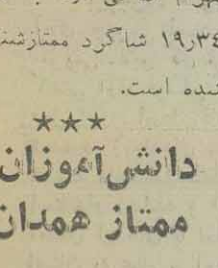 ۱۹٫۳۴ شاگرد ممتاز
شده است.
***
دانش‌آموزان
ممتاز همدان